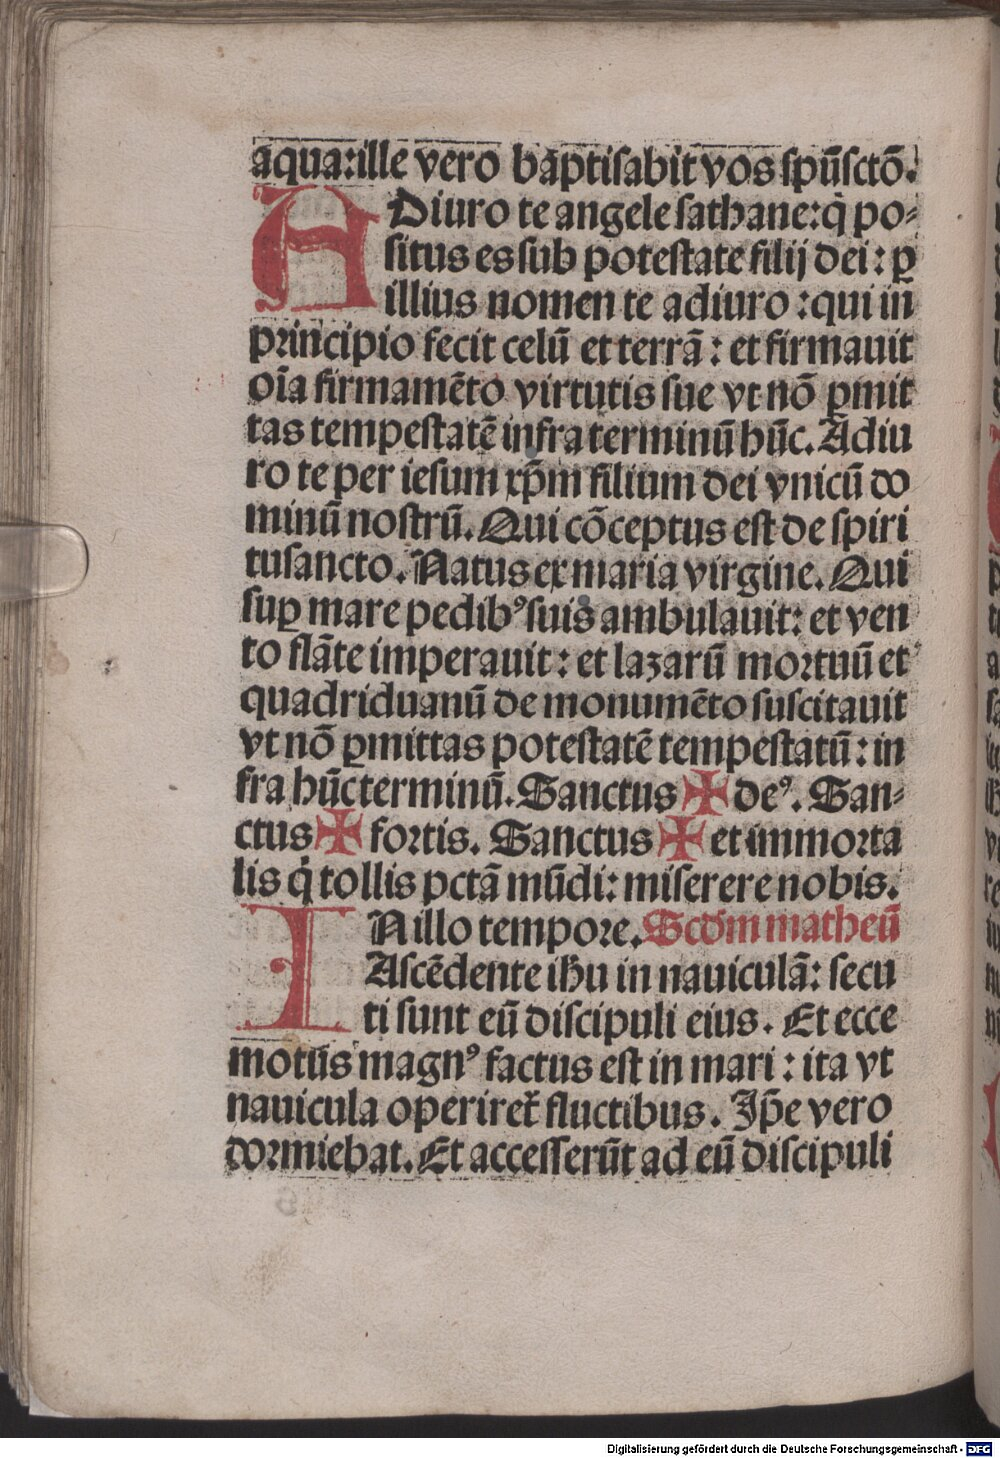 aqua:ille vero baptisabit vos spūsctō.
ADiuro te angele sathane:q̇ po⸗
situs es sub potestate filij dei: ꝑ
illius nomen te adiuro :qui in
principio fecit celū et terrā: et firmauit
oīa firmamēto virtutis sue vt nō ꝑmit
tas tempestatē infra terminū hūc. Adiu
ro te per iesum xp̄m filium dei vnicū do
minū nostrū. Qui cōceptus est de spiri
tusancto. Natus ex maria virgine. Qui
suꝑ mare pedibꝰ suis ambulauit: et ven
to flāte imperauit: et lazarū mortuū et
quadriduanū de monumēto suscitauit
vt nō ꝑmittas potestatē tempestatū: in
fra hūc terminū. Sanctus ✠ deꝰ. San⸗
ctus ✠ fortis. Sanctus ✠ et immorta
lis q̇ tollis pctā mūdi: miserere nobis.
IN illo tempore. Scd̄m matheū
Ascēdente ihu in nauiculā: secu
ti sunt eū discipuli eius. Et ecce
motūs magnꝰ factus est in mari: ita vt
nauicula operiret̄ fluctibus. Ip̄e vero
dormiebat. Et accesserūt ad eū discipuli
Digitalisierung gefördert durch die Deutsche Forschungsgemeinschaft - DFG